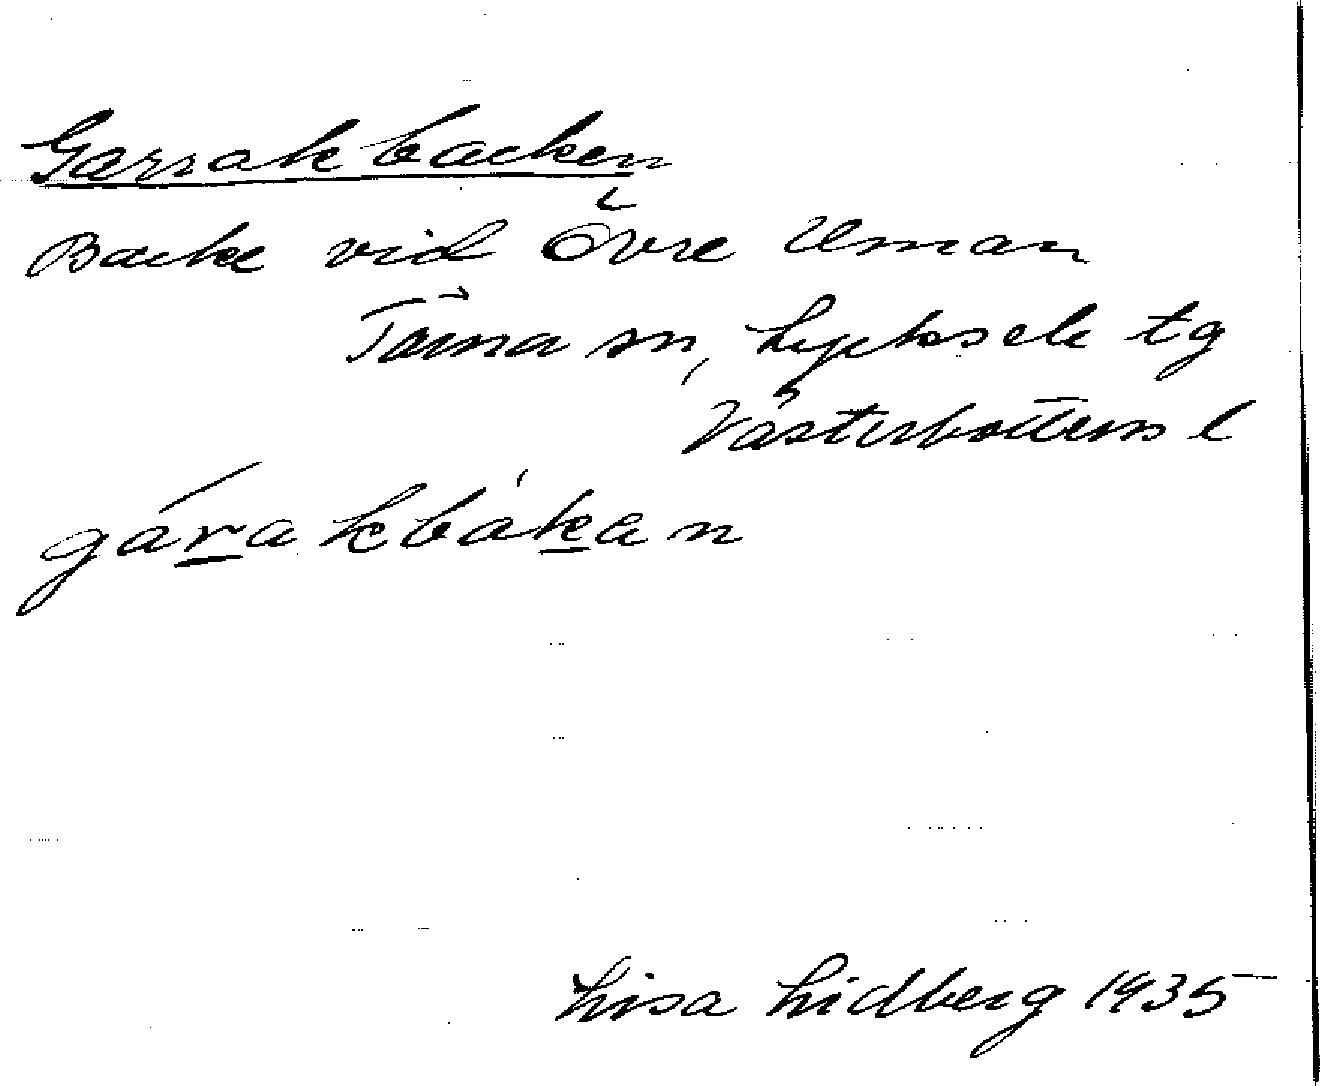 Garrakbacken
Backe vid Övre Uman
Tärna sn, Lycksele tg
Västerbottens l
gárakbákan
Lisa Lidberg 1935